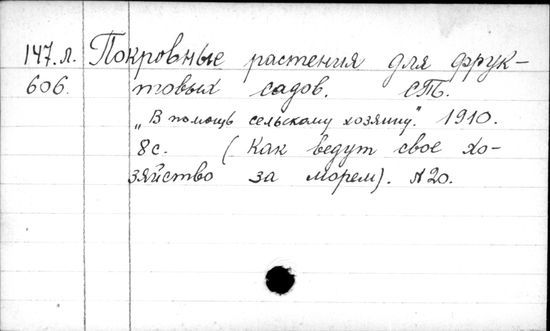 147.л. Покровные растения для фрук-
606. товых садов. СПБ.
„В помощь сельскому хозяину." 1910.
8с. (Как ведут свое хо-
зяйство за морем). №20.